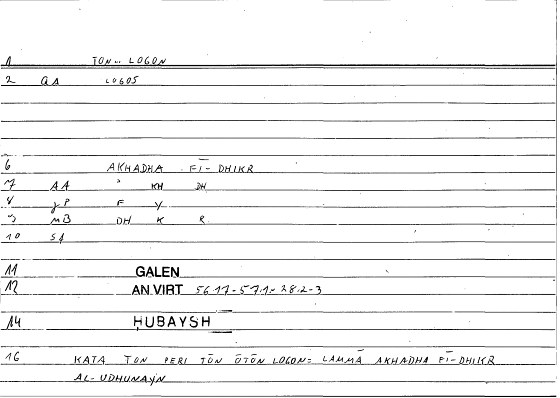 1 TON.. LOGON
2 QA LOGOS
6 AKHADHA FĪ- DHIKR
7 AA ' KH DH
8 JP F Y
9 MB DH K R
10 SA
11 GALEN
12 AN VIRT 56.17-57.1 = 28.2-3
14 ḤUBAYSH
16 KATA TON PERI TŌN ŌTŌN LOGON= LAMMĀ AKHADHA FĪ-DHIKR
AL-UDHUNAYN